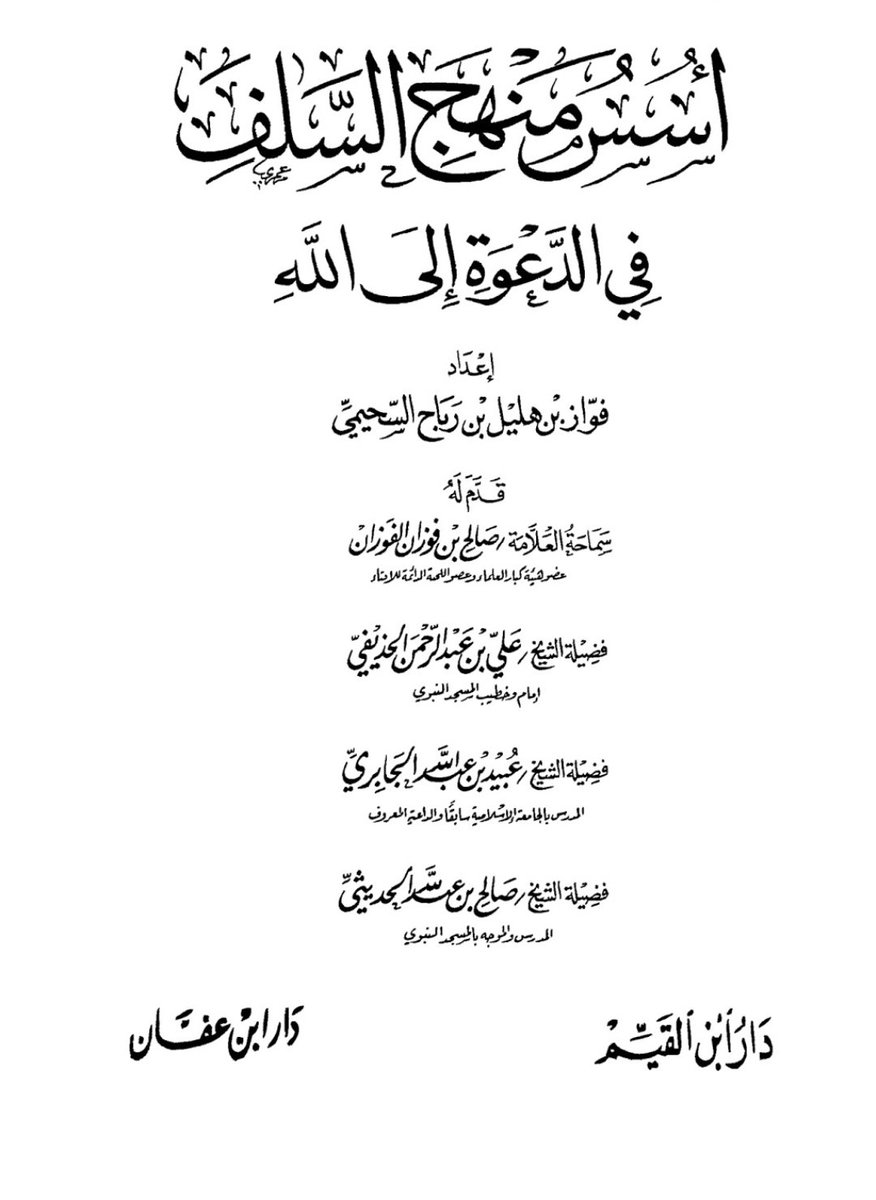 أُسُسُ مَنْهَجِ السَّلَفِ
فِي الدَّعْوَةِ إِلَى اللَّهِ
إِعْدَاد
فوّاز بْن هليل بْن رَبَاح السّحيميِّ
قَدَّمَ لَهُ
سَمَاحَةُ العَلَّامَة / صَالح بْن فوزان الفَوْزان
عضو هيئة كبار العلماء وعضو اللجنة الدائمة للإفتاء
فَضِيلة الشيخ / عَليّ بْن عَبْد الرَّحْمن الحذيفيّ
إمام وخطيب المسجد النبوي
فَضِيلة الشيخ / عُبيْد بْن عبد اللَّه الجَابِريِّ
المدرس بالجامعة الإسلامية سابقًا والداعية المعروف
فَضِيلة الشيخ / صَالح بن عبد اللَّه الحديثيِّ
المدرس والموجه بالمسجد النبوي
دَارُ ابْن القَيِّم
دَار ابْن عفَّان